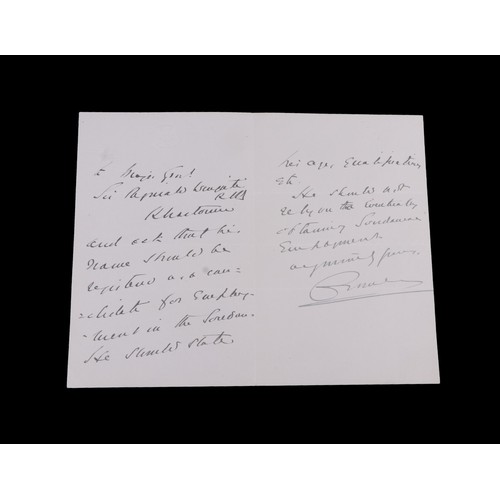 to Major Genl
Sir Reginald Wingate
KCB
Khartoum
and ask that his
name should be
registered as a can-
-didate for Employ-
-ment in the Soudan.
He should state
his age, Qualifications
etc
He should not
rely on to Certainty
obtaining Soudanese
Employment.
Cromer